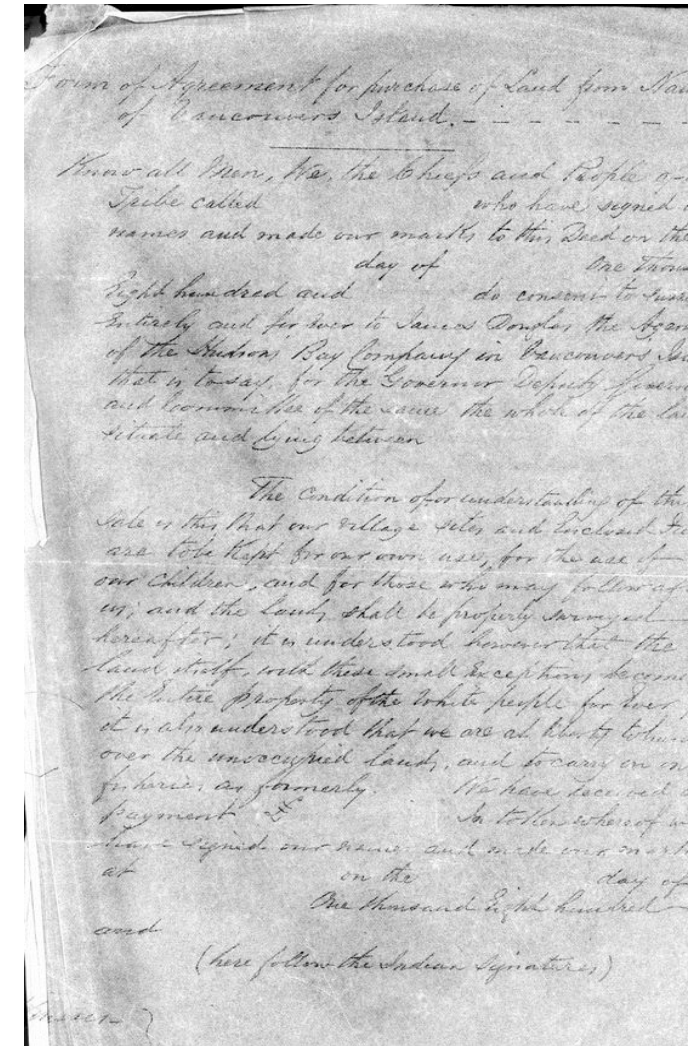 Form of Agreement for purchase of Land from Na
of Vancouvers Island. - - - - - -
Know all Men, We, the Chiefs and People of
Tribe called who have signed
names and made our marks to this Deed on the
day of One Thous
Eight hundred and do consent to surre
Entirely and for ever to James Douglas the Agen
of the Hudsons Bay Company in Vancouvers Isl
that is to say, for the Governor Deputy Govern
and Committee of the same the whole of the la
situate and lying between
The Condition of or understanding of th
sale is this that our village sites and Enclosed Fie
are to be Kept for our own use, for the use of
our Children, and for those who may follow af
us; and the lands shall be properly surveyed
hereafter; it is understood however that the
land itself, with these small Exceptions become
the Entire property of the White people for Ever
it is also understood that we are at liberty to hun
over the unoccupied lands, and to carry on ou
fisheries as formerly. We have received
payment In token whereof w
have signed our names and made our mark
at on the day of
One thousand Eight hundred
and
(here follow the Indian Signatures)